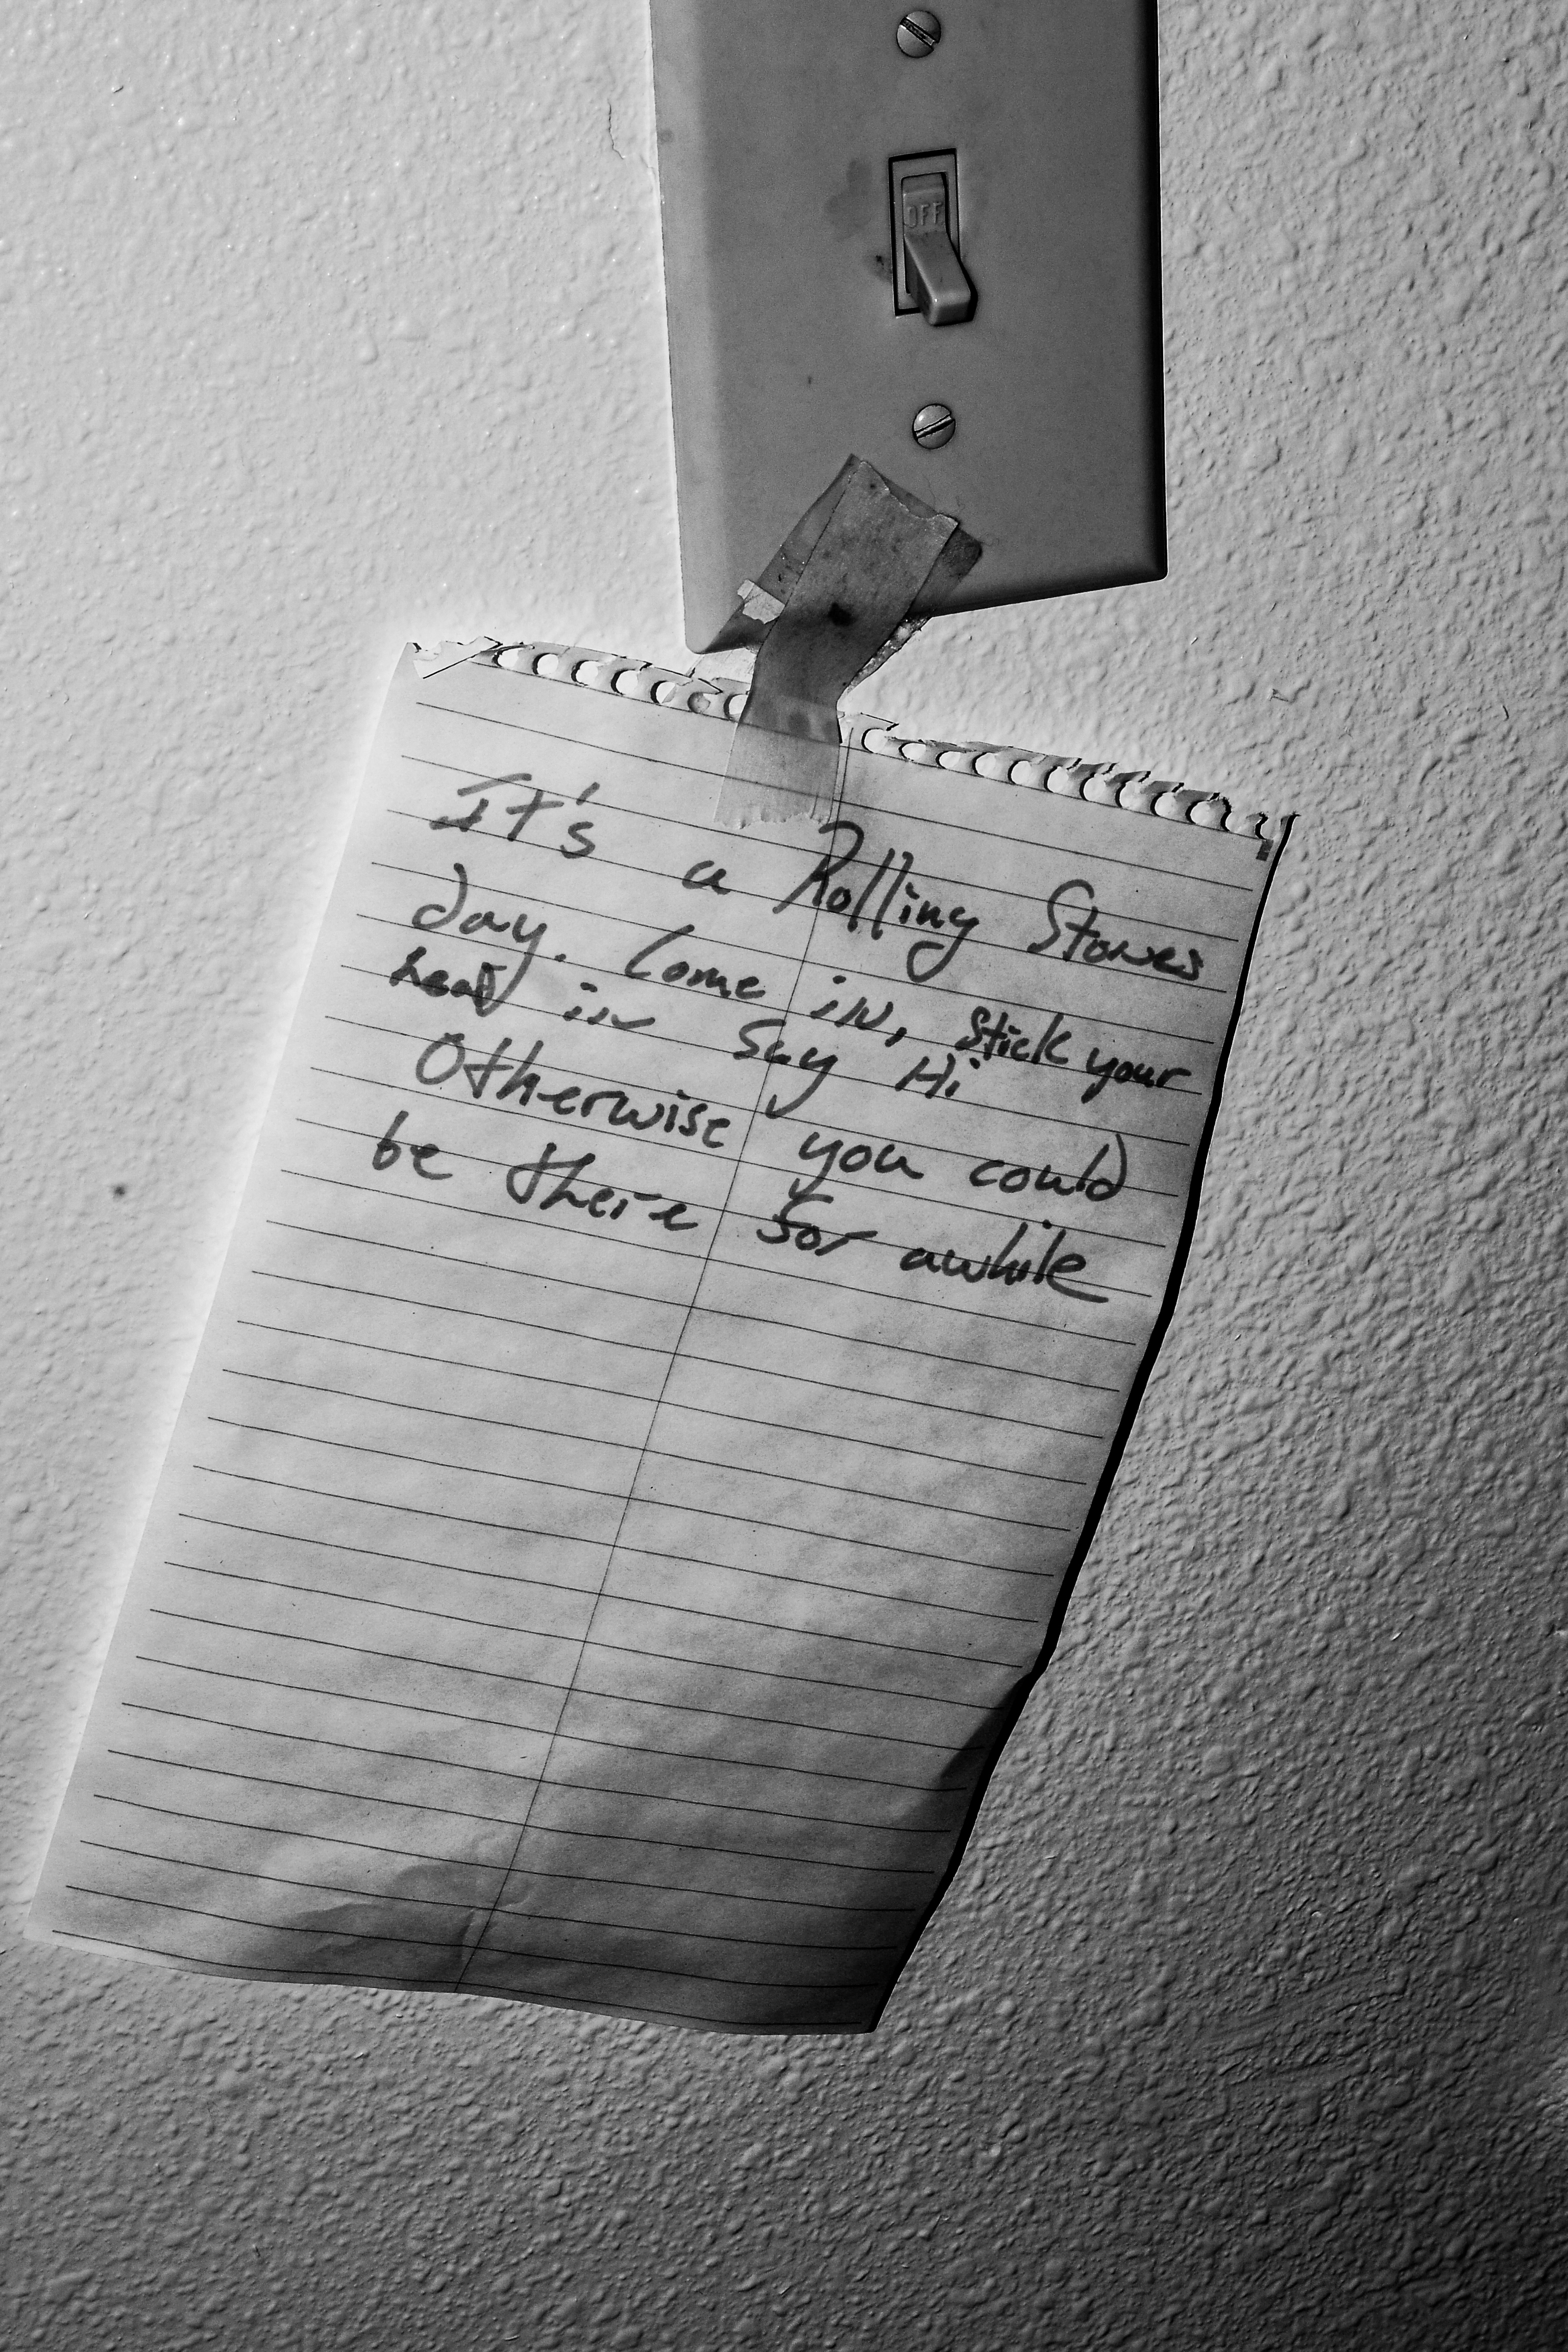 OFF
It's a Rolling Stones
day. Come in, stick your
head in say Hi
Otherwise you could
be there for awhile